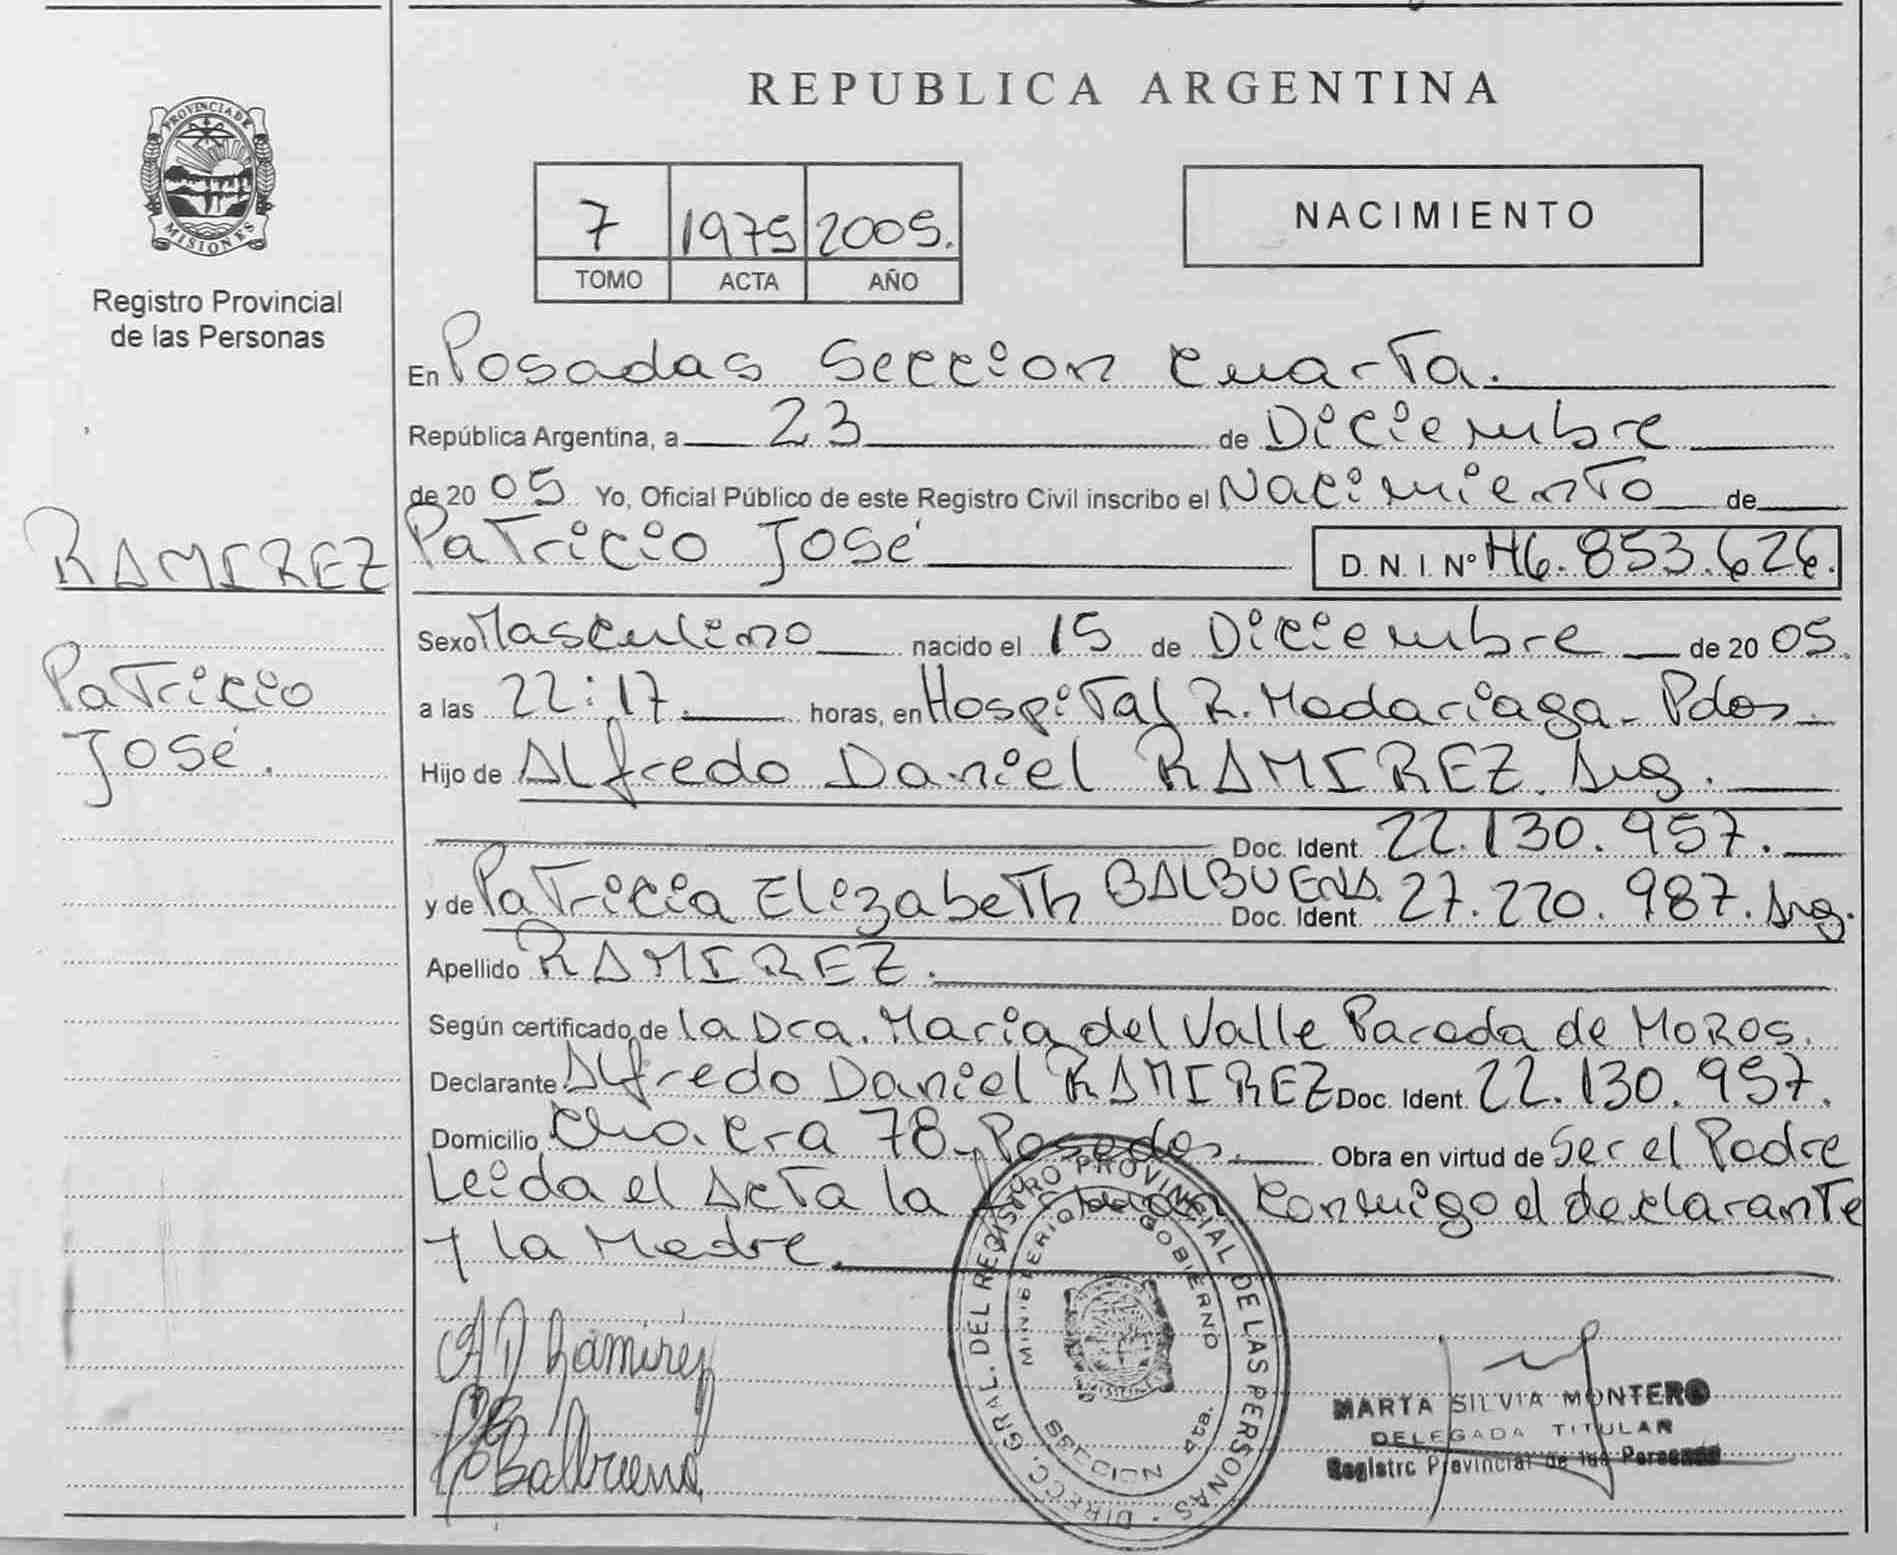 REPUBLICA ARGENTINA
PROVINCIA DE MISIONES
Registro Provincial
de las Personas
7 1975 2005.
TOMO ACTA AÑO
NACIMIENTO
En Posadas Seccion Cuarta.
República Argentina, a 23 de Diciembre
de 20 05 Yo, Oficial Público de este Registro Civil inscribo el Nacimiento de
RAMIREZ
Patricio José
Patricio José D.N.I. Nº 46.853.626.
Sexo Masculino nacido el 15 de Diciembre de 20 05.
a las 22:17. horas, en Hospital R. Madariaga - Pdas.
Hijo de Alfredo Daniel RAMIREZ. Arg.
Doc. Ident. 22.130.957.
y de Patricia Elizabeth BALBUENA. Doc. Ident. 27.220.987. Arg.
Apellido RAMIREZ.
Según certificado de la Dra. Maria del Valle Parada de MOROS.
Declarante Alfredo Daniel RAMIREZ Doc. Ident. 22.130.957.
Domicilio Chacra 78 - Posadas. Obra en virtud de Ser el Padre
Leida el Acta la firman conmigo el declarante
y la Madre.
AD Ramirez
Balbuena
DIRECC. GRAL. DEL REGISTRO PROVINCIAL DE LAS PERSONAS
MINISTERIO DE GOBIERNO
SECCION 4ta.
MARTA SILVIA MONTERO
DELEGADA TITULAR
Registro Provincial de las Personas